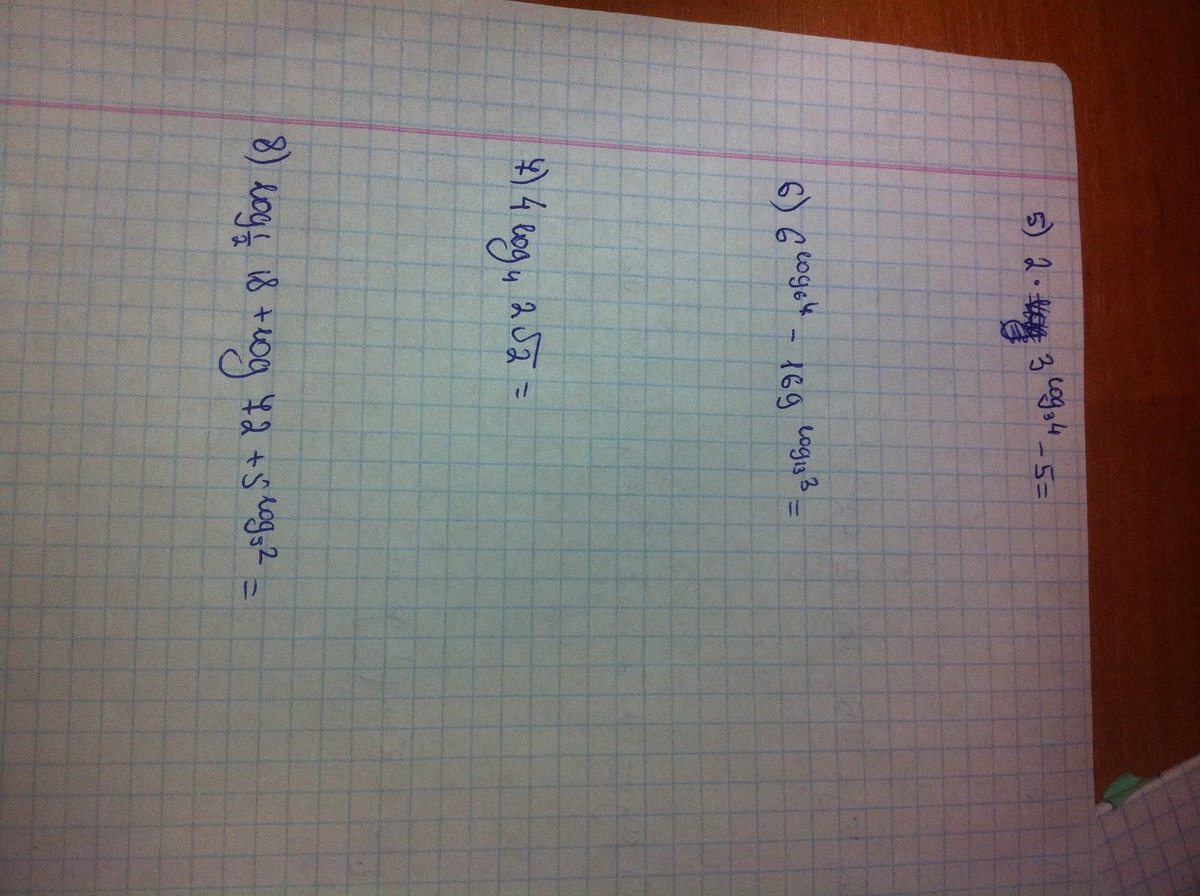 5) 2 · 3^log₃4 − 5 =
6) 6^log₆4 − 169^log₁₃3 =
7) 4 log₄ 2√2 =
8) log½ 18 + log 72 + 5^log₅2 =